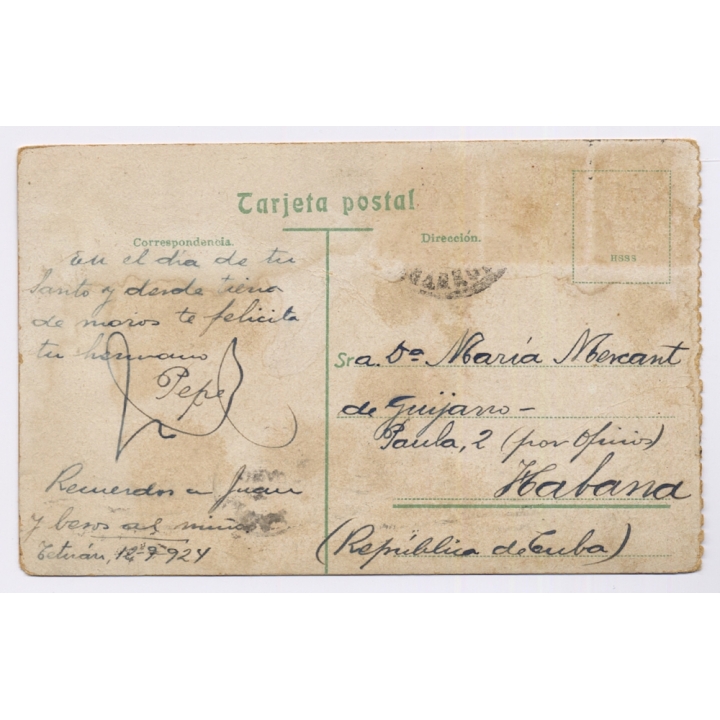 Tarjeta postal
Correspondencia.
Dirección.
H888
En el día de tu
Santo y desde tierra
de moros te felicita
tu hermano
Pepe
Recuerdos a Juan
y besos al niño
Tetuán, 12-9-924
Sra. Dª María Mercant
de Guijarro –
Paula, 2 (por Oficios)
Habana
(República de Cuba)